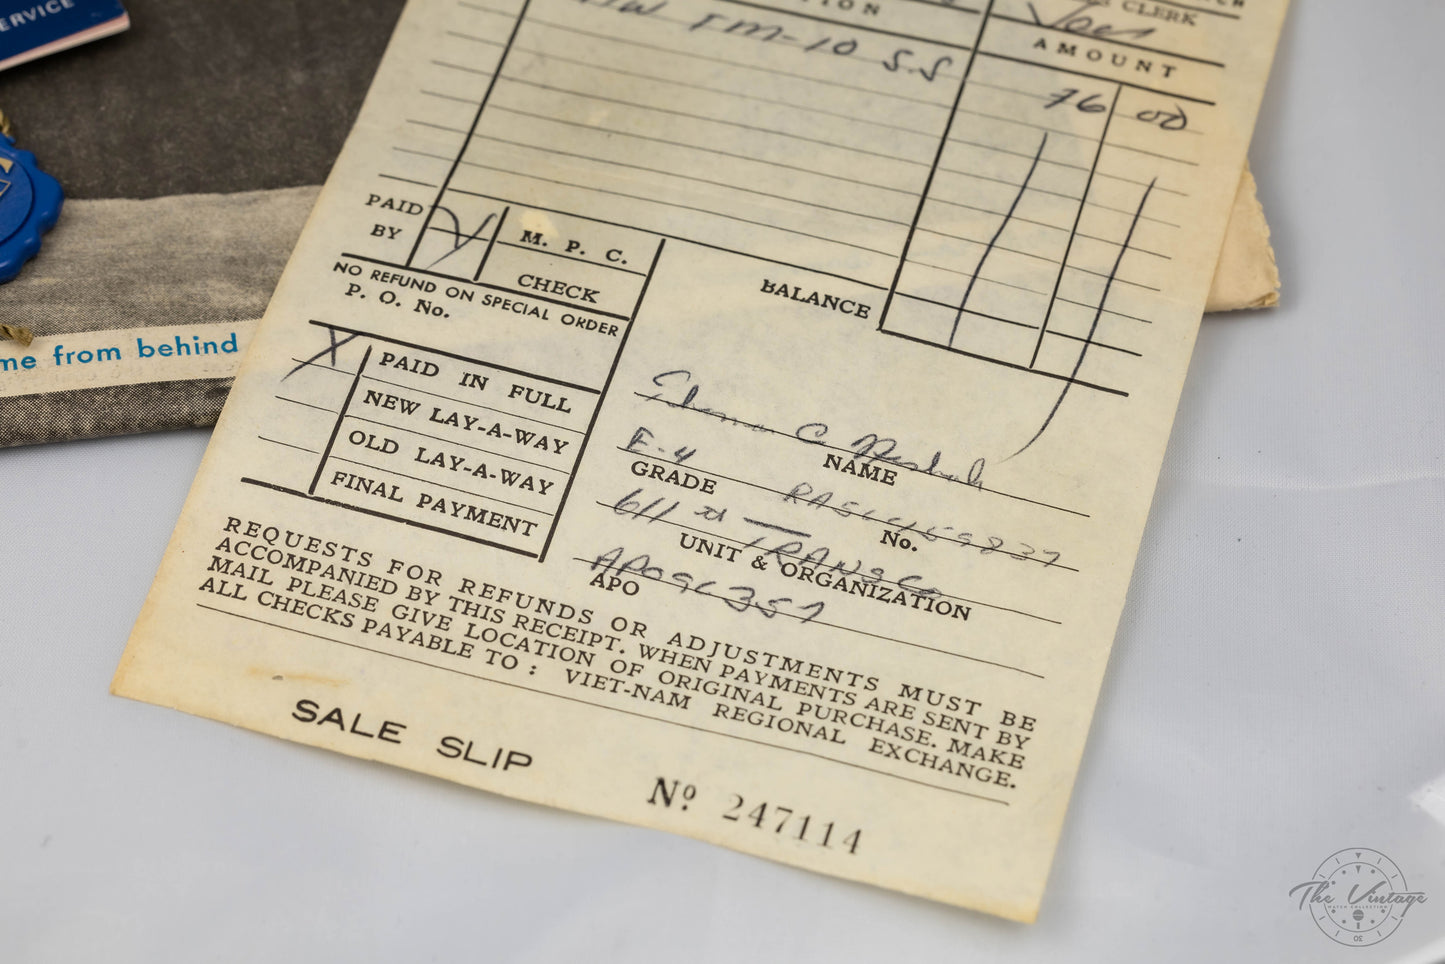 ERVICE
me from behind
TION
CLERK
AMOUNT
FM-10 S.S
76 00
PAID BY
M. P. C.
CHECK
BALANCE
NO REFUND ON SPECIAL ORDER
P. O. No.
X PAID IN FULL
NEW LAY-A-WAY
OLD LAY-A-WAY
FINAL PAYMENT
C
NAME
E-4
GRADE
No.
611 TRANS CO
UNIT & ORGANIZATION
APO
REQUESTS FOR REFUNDS OR ADJUSTMENTS MUST BE
ACCOMPANIED BY THIS RECEIPT. WHEN PAYMENTS ARE SENT BY
MAIL PLEASE GIVE LOCATION OF ORIGINAL PURCHASE. MAKE
ALL CHECKS PAYABLE TO : VIET-NAM REGIONAL EXCHANGE.
SALE SLIP
Nº 247114
The Vintage
WATCH COLLECTION
30